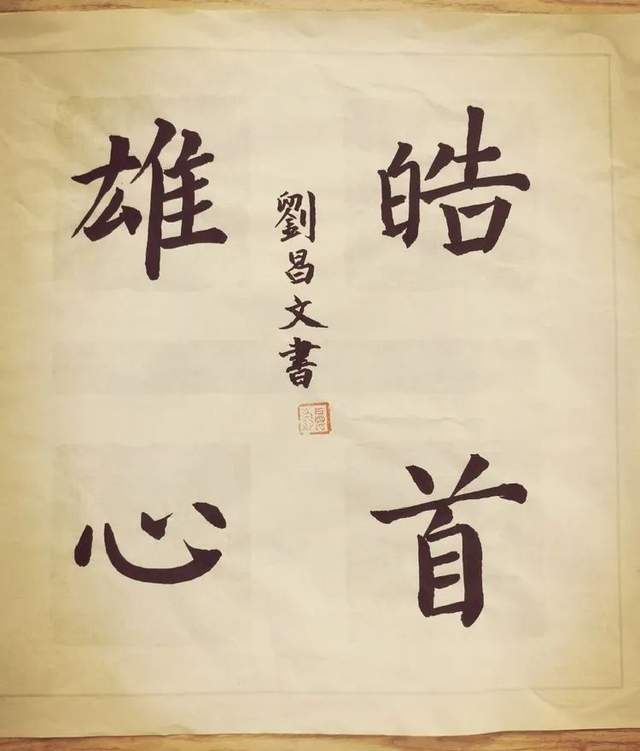 皓首
雄心
劉昌文書